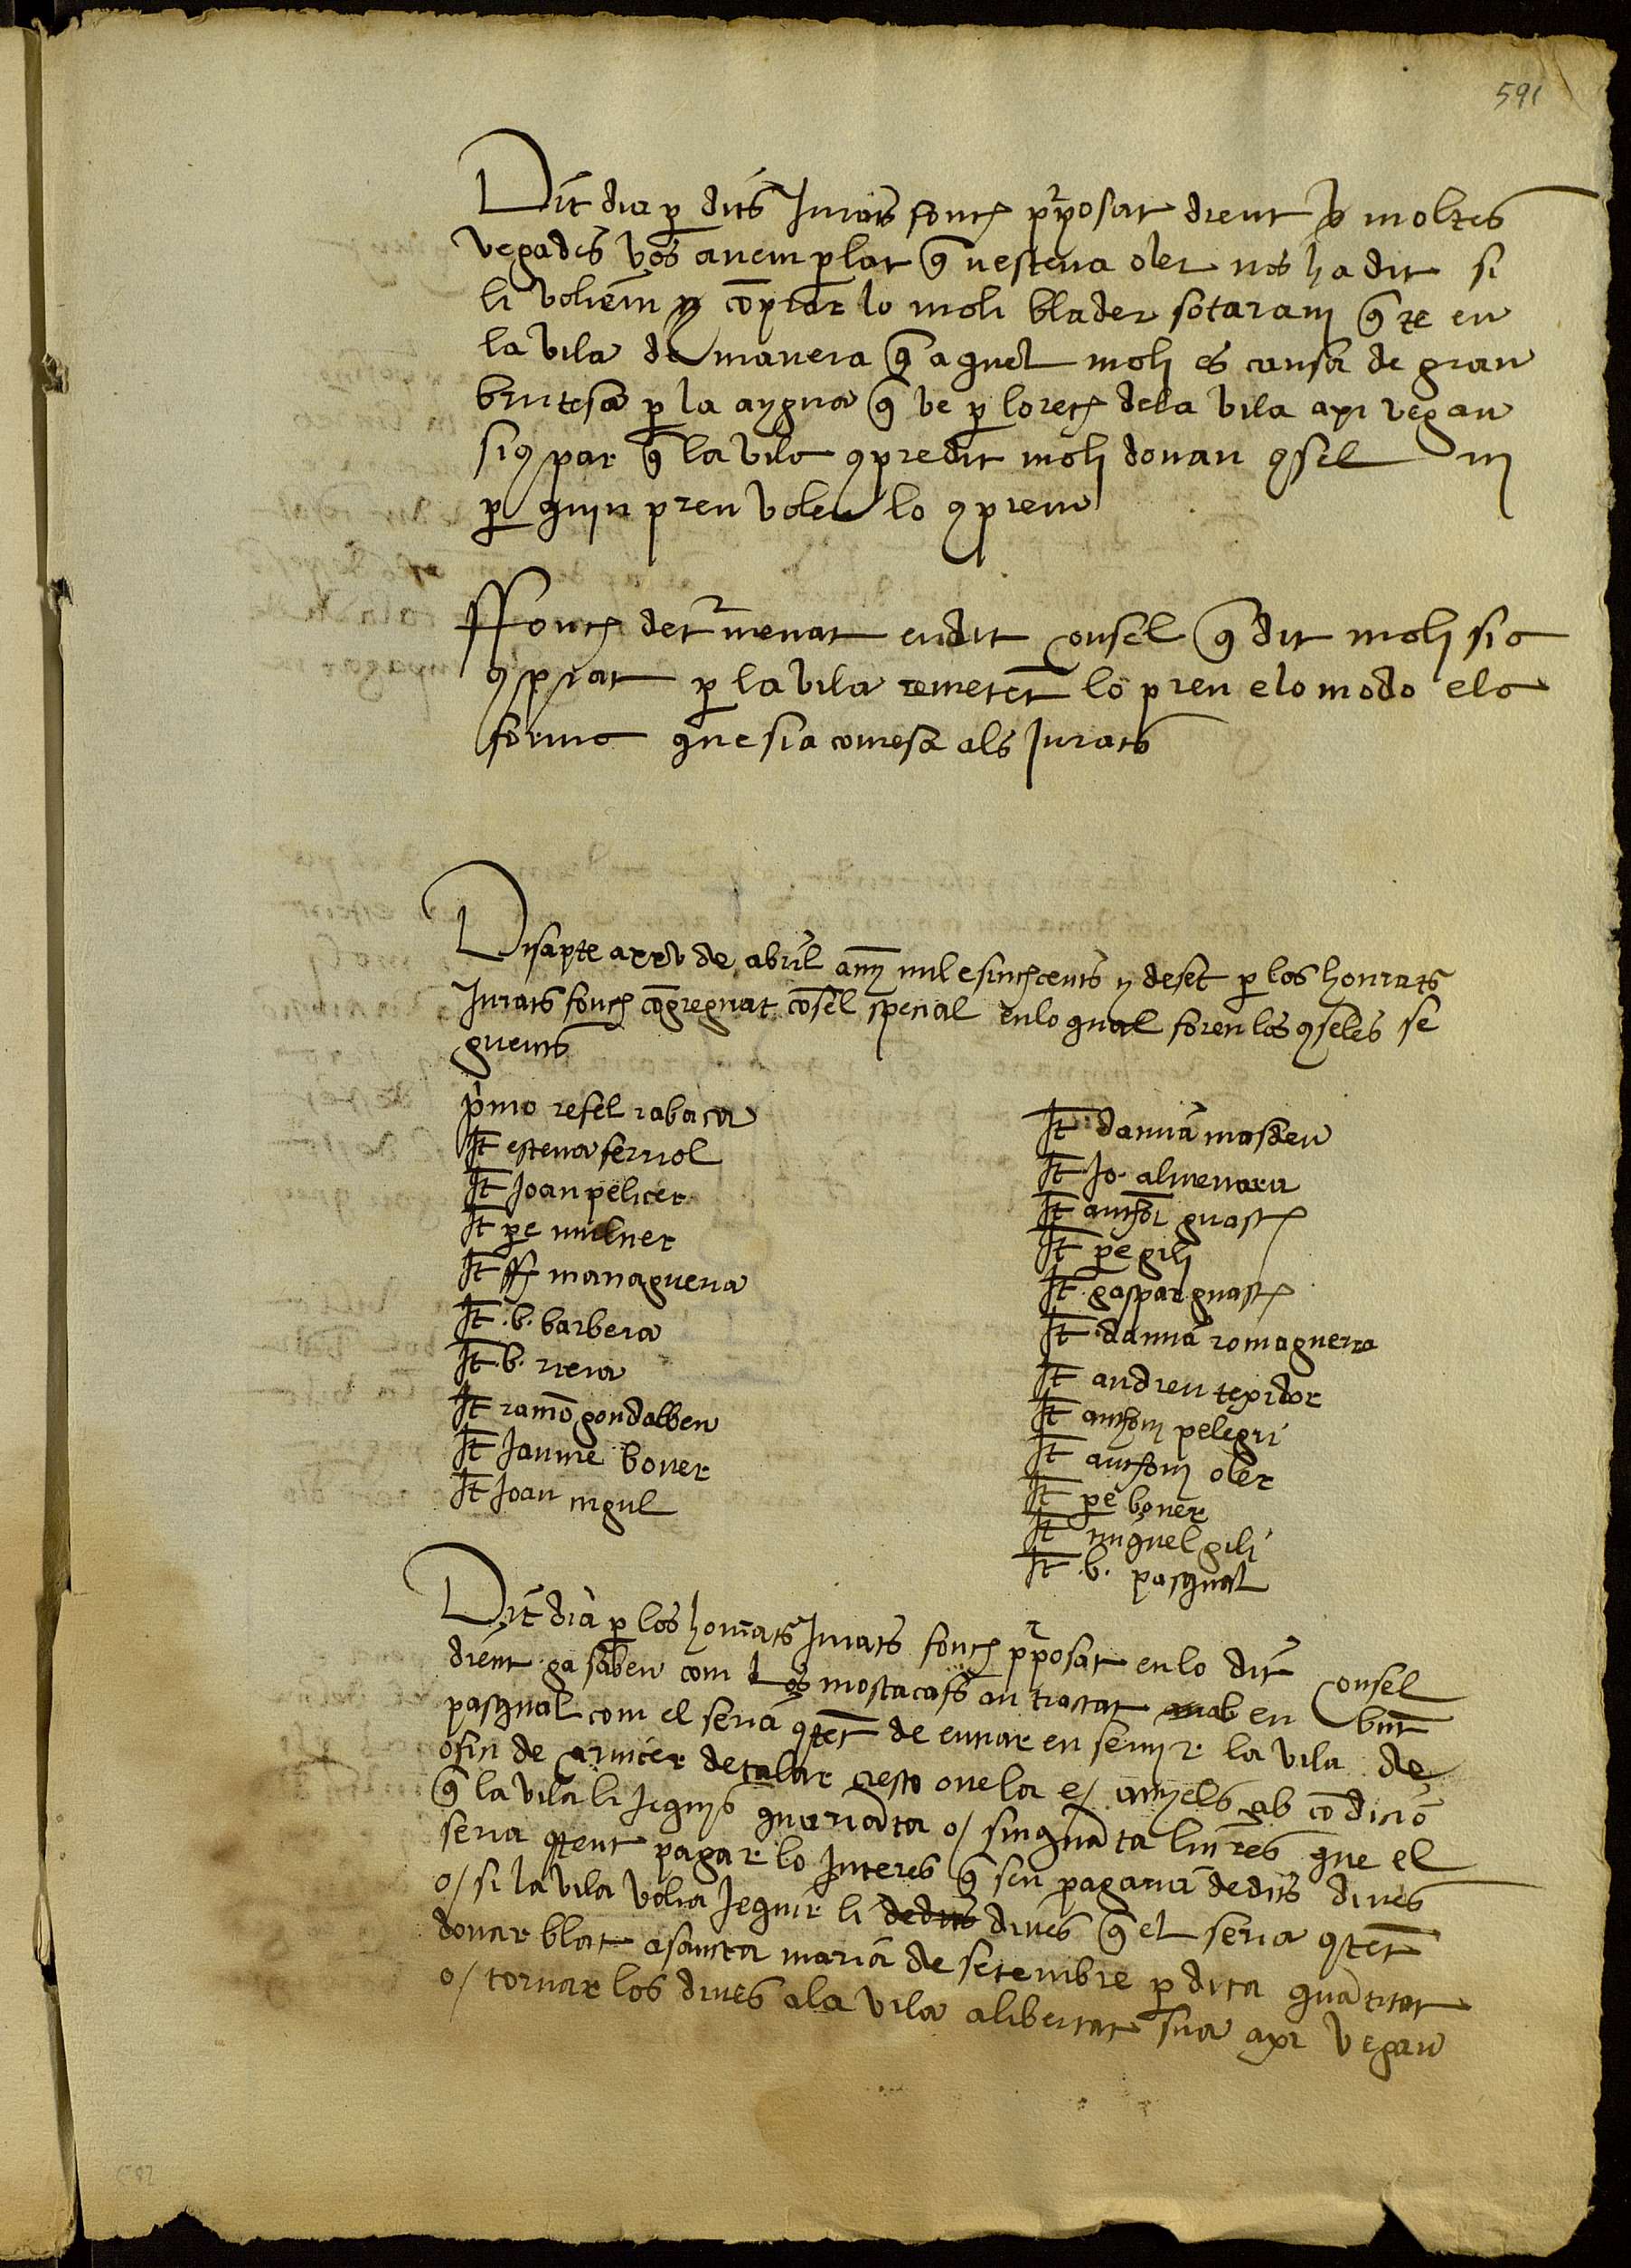 591
Dit dia per dits Jurats fonch proposat dient ja moltes
vegades vos avem parlat que n esteva oler nos ha dit si
li voliem comprar lo moli blader sotaram que te en
la vila de manera que aquel moli es causa de gran
brutesa per la aygua que ve per lo rech dela vila axi vegan
si us par que la vila compre dit moli donau consel ni
per quin preu voleu lo compren
Ffonch determenat en dit Consel que dit moli sia
comprat per la vila remetent lo preu e lo modo e la
forma que sia comesa als Jurats
Disapte a xxv de abril any mil e sinchcents y deset per los honrats
Jurats fonch congreguat consel special en lo qual foren los conselés se
guents
primo refel rabaca
It esteva ferriol
It Joan pelicer
It pere mulner
It ff managuerra
It .b. barbera
It .b. riera
It ramo gondalbeu
It Jaume bover
It Joan migul
It damia masdeu
It Jo. almenara
It anthoni guasch
It pere gili
It gaspar guasch
It damia romaguera
It andreu texidor
It anthoni pelegri
It anthoni oler
It pere boner
It miguel gili
It .b. pasqual
Dit dia per los honrats Jurats fonch proposat en lo dit Consel
dient ja sabeu com los mostacafs an tractat ab en bnt
pasqual com el seria content de entrar en servir la vila de
ofici de carnicer de talar cresto ovela e/ anyels ab condicio
que la vila li jequis quaranta o/ sinquanta liures que el
seria content pagar lo interes que sen pagaria de dits dines
o/ si la vila volia jequir li de dits dines que el seria content
donar blat a sancta maria de setembre per dita quantitat
o/ tornar los dines a la vila a libertat sua axi vegan